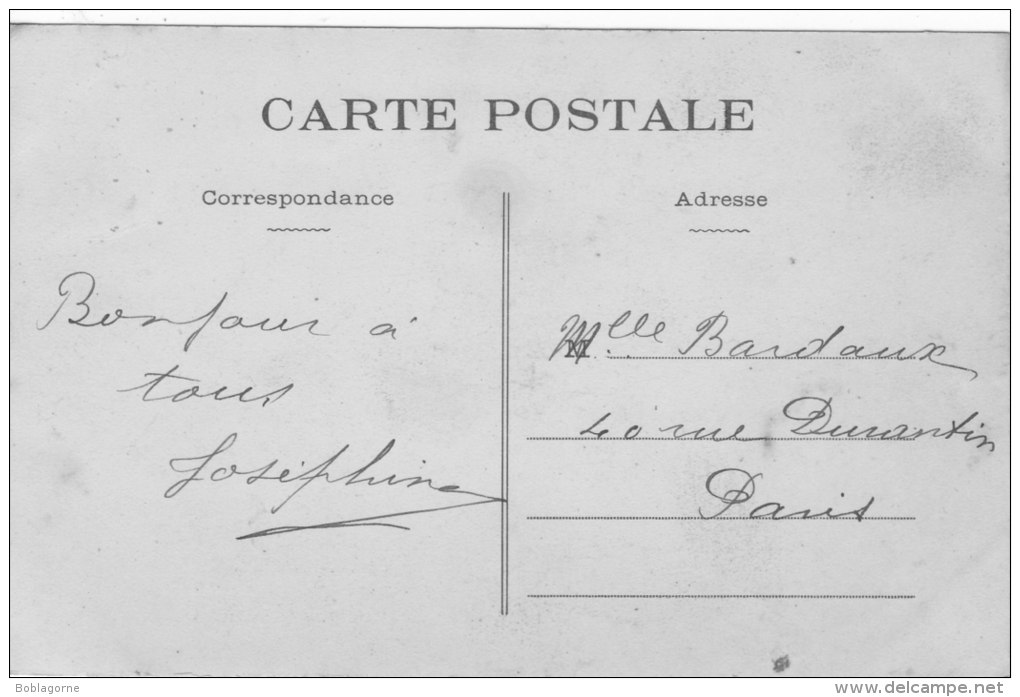 CARTE POSTALE
Correspondance
Bonjour à
tous
Joséphine
Adresse
Mlle Bardaux
40 rue Durantin
Paris
Boblagorne
www.delcampe.net